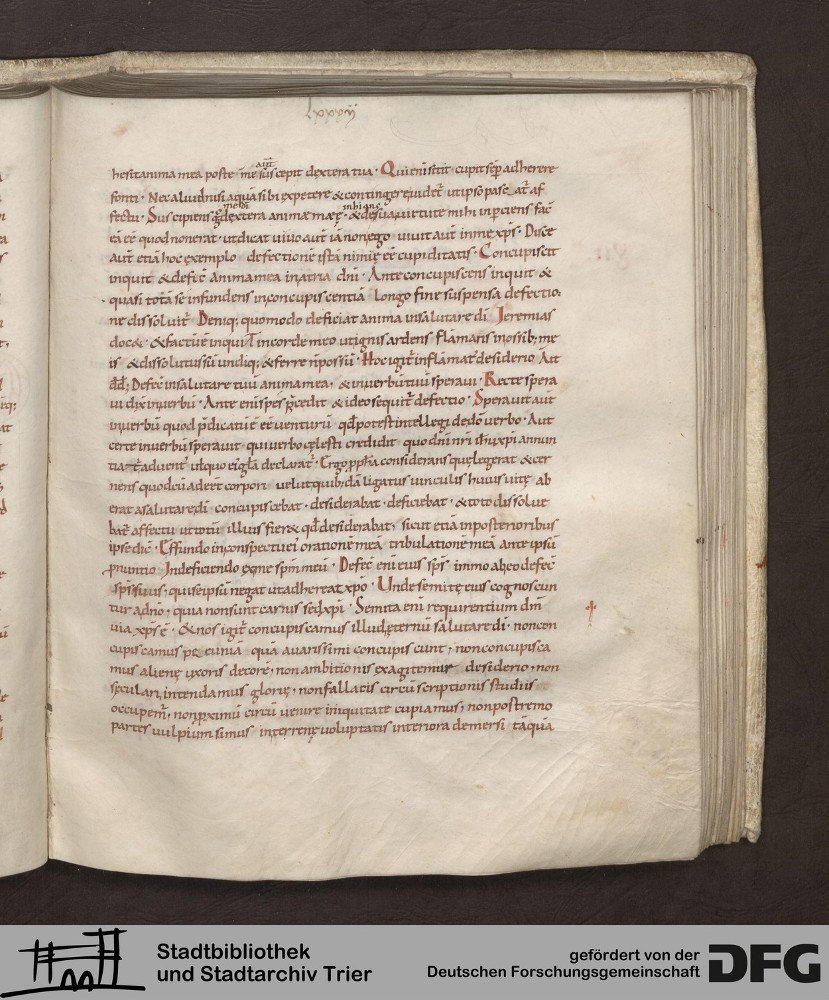 lxxxij
aut
hesit anima mea poste · me suscepit dextera tua · Qui eni sitit cupit sep adherere
fonti · Nec aliud nisi aqua sibi expetere & contingere uidet ut ipso pasca at af
fectu · Suscipiens dextera animae meę · & de sua uirtute mihi inpciens fac
ea ee quod non erat · ut dicat uiuo aut ia non ego uiuit aut in me xps · Disce
aut etia hoc exemplo defectione ista nimię ee cupiditatis · Concupiscit
inquit & defec anima mea in atria dni · Ante concupiscens inquit &
quasi tota se infundens in concupiscentia longo fine suspensa defectio
ne dissoluit · Deniq; quomodo deficiat anima in salutare di Jeremias
doc& · & factu e inquit in corde meo ut ignis ardens flamans in ossib; me
is & dissolutus su undiq; & ferre n possu · Hoc igit inflamat desiderio Ait
dd; Defec in salutare tuu anima mea, & in uerbu tuu speraui · Recte spera
ui dix in uerbu · Ante eni spes pcedit & ideo sequit defectio · Sperauit aut
in uerbu quod pdicatu e ee uenturu qd potest intellegi de do uerbo · Aut
certe in uerbu sperauit qui uerbo cęlesti credidit quo dni nri ihu xpi annun
tiat aduent utquo eigla declarat · Ergo ppha considerans quę legerat & cer
nens quod cu adeet corpori uelut quib;da ligatus uinculis huius uitę ab
erat a salutare di concupiscebat · desiderabat · deficiebat · & toto dissolue
bat affectu ut totu illius fier& qd desiderabat, sicut etia in posterioribus
ipse dic · Effundo in conspectu ei oratione mea tribulatione mea ante ipsu
pnuntio Jn deficiendo ex me spm meu · Defec eni eius sps immo ab eo defec
sps suus, qui se ipsu negat ut adhereat xpo · Unde semitę eius cognoscun
tur a dno, quia non sunt carnis sed xpi · Semita eni requirentium dm
uia xps e · & nos igit concupiscamus illud ęternu salutare di · non con
cupiscamus pecunia qua auarissimi concupiscunt, non concupisca
mus alienę uxoris decore, non ambitionis exagitemur desiderio, non
sęculari intendamus glorię, non fallacis circu scriptionis studiis
occupem, non pximu circu uenire iniquitate cupiamus, non postremo
partes uulpium simus in terrenę uoluptatis interiora demersi taqua
Stadtbibliothek
und Stadtarchiv Trier
gefördert von der
Deutschen Forschungsgemeinschaft
DFG